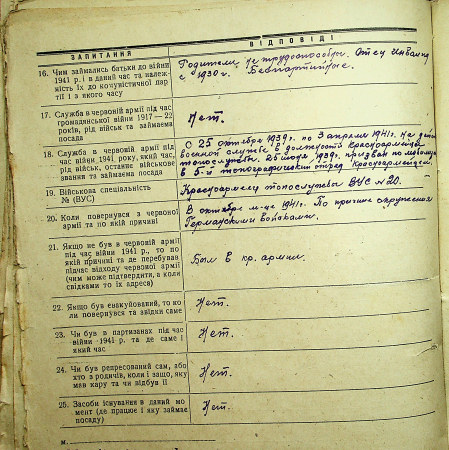 ЗАПИТАННЯ
ВІДПОВІДІ
16. Чим займались батьки до війни
1941 р. і в даний час та належ-
ність їх до комуністичної пар-
тії і з якого часу
Родители не трудоспособны. Отец инвалид
с 1930 г. Беспартийные.
17. Служба в червоній армії під час
громадянської війни 1917—22
років, рід військ та займаєма
посада
Нет.
18. Служба в червоній армії під
час війни 1941 року, який час,
рід військ, останнє військове
звання та займаєма посада
С 25 октября 1939 г. по 3 апреля 1941 г. на действ.
военной службе в должности красноармейца
топослужбы. 25 июля 1941 г. призван по мобилиз.
в 5-й топографический отряд красноармейцем
19. Військова спеціальність
№ (ВУС)
Красноармеец топослужбы ВУС № 20.
20. Коли повернувся з червоної
армії та по якій причині
В октябре м-це 1941 г. По причине окружения
Германскими войсками.
21. Якщо не був в червоній армії
під час війни 1941 р., то по
якій причині та де перебував
під час відходу червоної армії
(чим може підтвердити, а коли
свідками то їх адреса)
Был в кр. армии.
22. Якщо був евакуйований, то ко-
ли повернувся та звідки саме
Нет.
23. Чи був в партизанах під час
війни 1941 р. та де саме і
який час
Нет.
24. Чи був репресований сам, або
хто з родичів, коли і защо, яку
мав кару та чи відбув її
Нет.
25. Засоби існування в даний мо-
мент (де працює і яку займає
посаду)
Нет.
м.